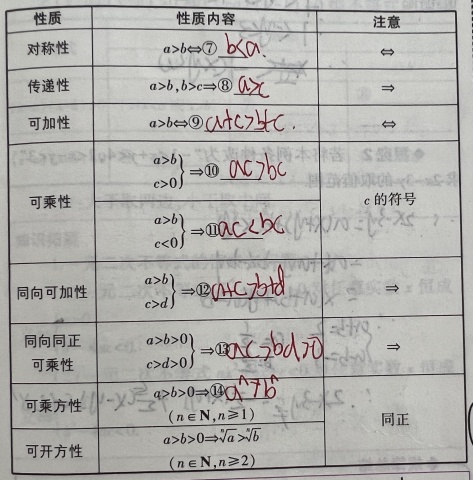 性质 性质内容 注意
对称性 a>b⇔⑦ b<a. ⇔
传递性 a>b,b>c⇒⑧ a>c ⇒
可加性 a>b⇔⑨ a+c>b+c. ⇔
可乘性 a>b c>0}⇒⑩ ac>bc c的符号
a>b c<0}⇒⑪ ac<bc
同向可加性 a>b c>d}⇒⑫ a+c>b+d ⇒
同向同正可乘性 a>b>0 c>d>0}⇒⑬ ac>bd>0 ⇒
可乘方性 a>b>0⇒⑭ aⁿ>bⁿ 同正
(n∈N,n≥1)
可开方性 a>b>0⇒ⁿ√a>ⁿ√b
(n∈N,n≥2)